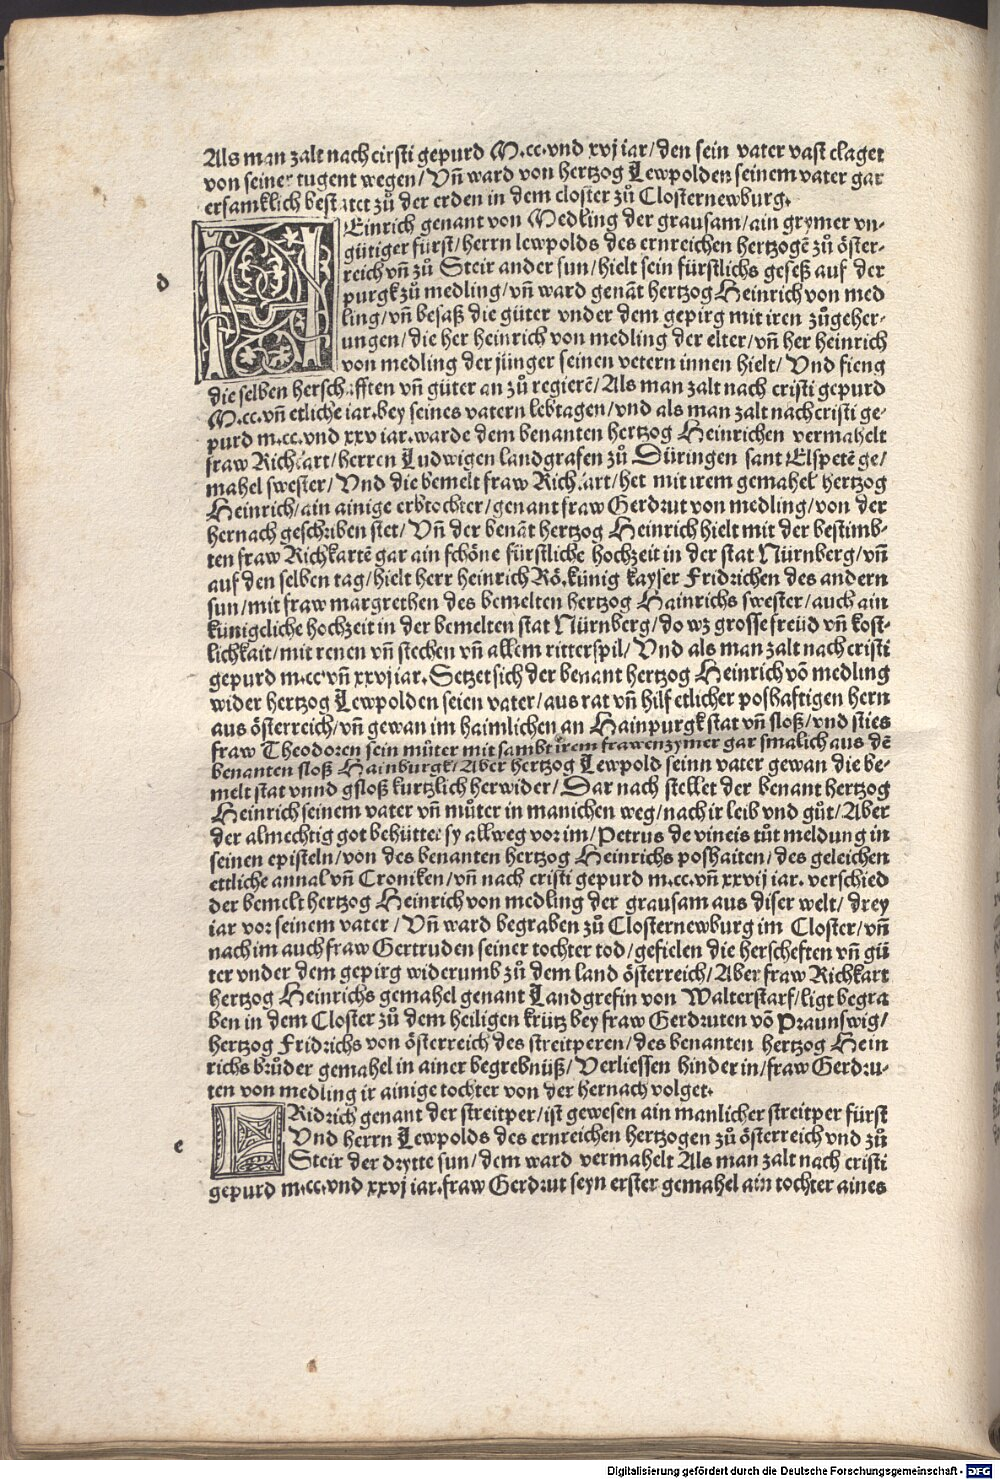 Als man zalt nach cirsti gepurd M.cc.vnd xvj iar/den sein vater vast claget
von seiner tugent wegen/Vñ ward von hertzog Lewpolden seinem vater gar
ersamklich bestatet zů der erden in dem closter zů Closternewburg.
d
HEinrich genant von Medling der grausam/ain grymer vn-
gütiger fürst/herrn lewpolds des ernreichen hertzogē zů öster-
reich vñ zů Steir ander sun/hielt sein fürstlichs geseß auf der
purgk zů medling/vñ ward genāt hertzog Heinrich von med
ling/vñ besaß die güter vnder dem gepirg mit iren zůgeher-
ungen/die her heinrich von medling der elter/vñ her heinrich
von medling der jünger seinen vetern innen hielt/Vnd fieng
die selben herschafften vñ güter an zů regierē/Als man zalt nach cristi gepurd
M.cc.vñ etliche iar.bey seines vatern lebtagen/vnd als man zalt nach cristi ge-
purd m.cc.vnd xxv iar.warde dem benanten hertzog Heinrichen vermahelt
fraw Richkart/herren Ludwigen landgrafen zů Düringen sant Elspetē ge/
mahel swester/Vnd die bemelt fraw Richkart/het mit irem gemahel hertzog
Heinrich/ain ainige erbtochter/genant fraw Gerdrut von medling/von der
hernach geschriben stet/Vñ der benāt hertzog Heinrich hielt mit der bestimb-
ten fraw Richkartē gar ain schöne fürstliche hochzeit in der stat Nürnberg/vñ
auf den selben tag/hielt herr heinrich Rö.künig kayser Fridrichen des andern
sun/mit fraw margrethen des bemelten hertzog Hainrichs swester/auch ain
künigeliche hochzeit in der bemelten stat Nürnberg/do wz grosse freüd vñ kost-
lichkait/mit renen vñ stechen vñ allem ritterspil/Vnd als man zalt nach cristi
gepurd m.cc.vñ xxvj iar.Setzet sich der benant hertzog Heinrich vō medling
wider hertzog Lewpolden seien vater/aus rat vñ hilf etlicher poshaftigen hern
aus österreich/vñ gewan im haimlichen an Hainpurgk stat vñ sloß/vnd sties
fraw Theodoren sein můter mit sambt irem frawenzymer gar smalich aus dē
benanten sloß Hainburgk/Aber hertzog Lewpold seinn vater gewan die be-
melt stat vnnd gsloß kurtzlich herwider/Dar nach stellet der benant hertzog
Heinrich seinem vater vñ můter in manichen weg/nach ir leib vnd gůt/Aber
der almechtig got behüttet sy allweg vor im/Petrus de vineis tůt meldung in
seinen episteln/von des benanten hertzog Heinrichs poshaiten/des geleichen
ettliche annal vñ Croniken/vñ nach cristi gepurd m.cc.vñ xxvij iar.verschied
der bemelt hertzog Heinrich von medling der grausam aus diser welt/drey
iar vor seinem vater/Vñ ward begraben zů Closternewburg im Closter/vñ
nach im auch fraw Gertruden seiner tochter tod/gefielen die herscheften vñ gü
ter vnder dem gepirg widerumb zů dem land österreich/Aber fraw Richkart
hertzog Heinrichs gemahel genant Landgrefin von Walterstarf/ligt begra
ben in dem Closter zů dem heiligen krütz bey fraw Gerdruten vō Praunswig/
hertzog Fridrichs von österreich des streitperen/des benanten hertzog Hein
richs brůder gemahel in ainer begrebnüß/Verliessen hinder in/fraw Gerdru-
ten von medling ir ainige tochter von der hernach volget.
e
FRidrich genant der streitper/ist gewesen ain manlicher streitper fürst
Vnd herrn Lewpolds des ernreichen hertzogen zů österreich vnd zů
Steir der drytte sun/dem ward vermahelt Als man zalt nach cristi
gepurd m.cc.vnd xxvj iar.fraw Gerdrut seyn erster gemahel ain tochter aines
Digitalisierung gefördert durch die Deutsche Forschungsgemeinschaft - DFG